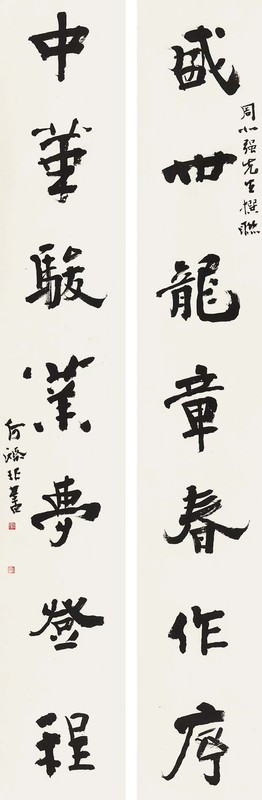 盛世龍章春作序
周小强先生撰联
中華駿業夢登程
何满